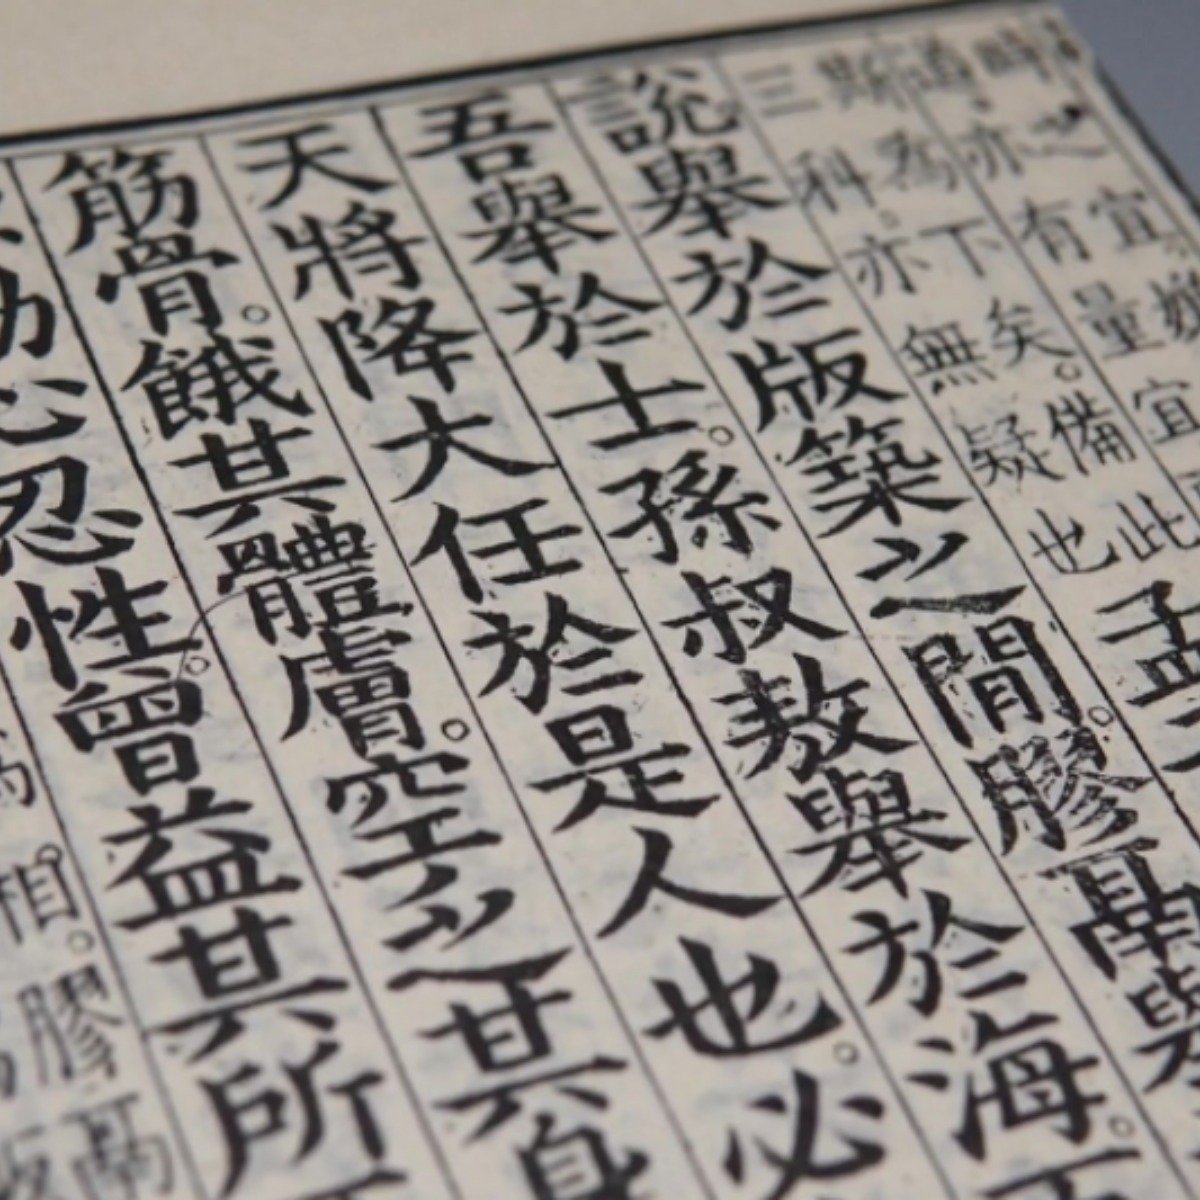 時之宜
道亦有量宜
斯為下矣。備此
三科。亦無疑也
孟子
說舉於版築之間。膠鬲舉
吾舉於士。孫叔敖舉於海。
天將降大任於是人也。必
筋骨。餓其體膚。空乏其身
動心忍性。曾益其所
相。膠鬲